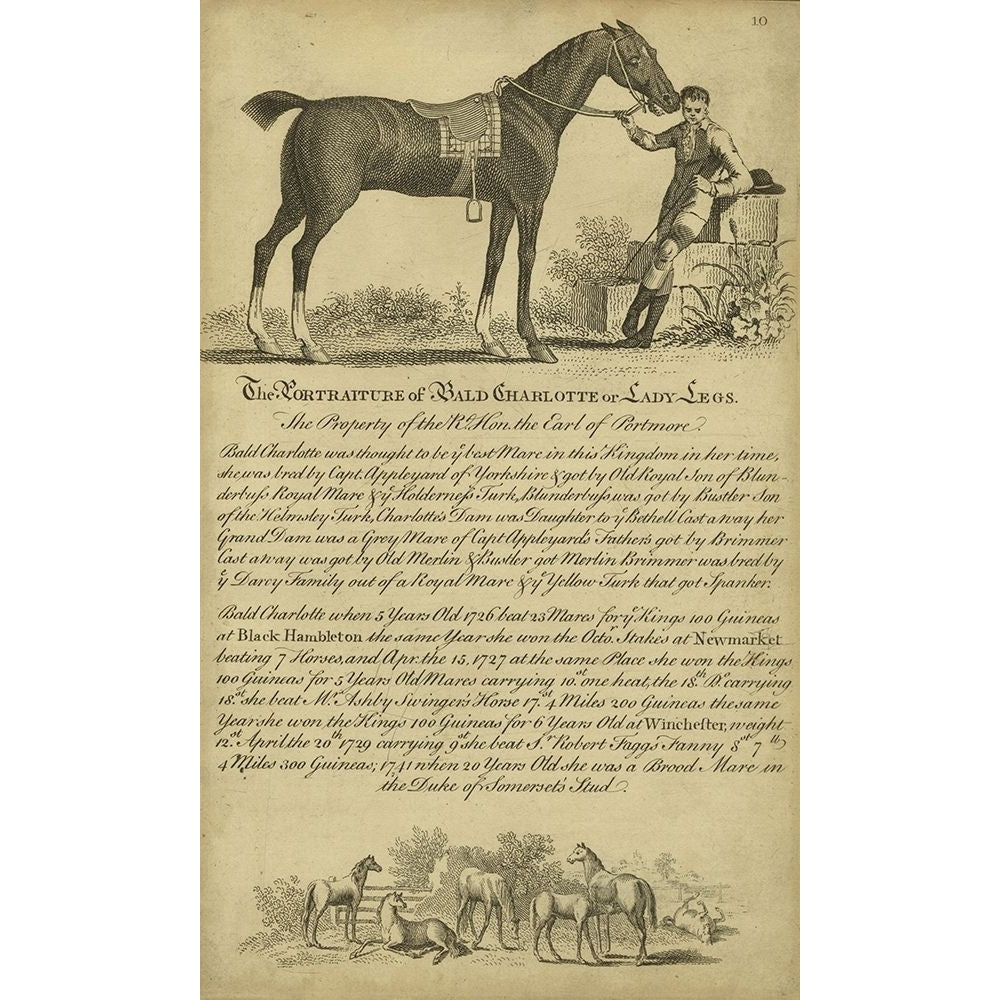 10
The PORTRAITURE of BALD CHARLOTTE or LADY LEGS.
The Property of the Rt. Hon. the Earl of Portmore.
Bald Charlotte was thought to be ye best Mare in this Kingdom in her time,
she was bred by Capt. Appleyard of Yorkshire & got by Old Royal Son of Blun-
derbuſs Royal Mare & ye Holderneſs Turk, Blunderbuſs was got by Bustler Son
of the Helmsley Turk, Charlotte's Dam was Daughter to ye Bethell Cast away her
Grand Dam was a Grey Mare of Capt Appleyard's Father's got by Brimmer
Cast away was got by Old Merlin & Bustler got Merlin Brimmer was bred by
ye Darcy Family out of a Royal Mare & ye Yellow Turk that got Spanker.
Bald Charlotte when 5 Years Old 1726 beat 23 Mares for ye Kings 100 Guineas
at Black Hambleton the same Year she won the Octor. Stakes at Newmarket
beating 7 Horses, and Apr. the 15, 1727 at the same Place she won the Kings
100 Guineas for 5 Years Old Mares carrying 10.st one heat, the 18.th Do. carrying
18.st she beat Mr. Ashby Swinger's Horse 17.st 4 Miles 200 Guineas the same
Year she won the Kings 100 Guineas for 6 Years Old at Wincheſter, weight
12.st April the 20th 1729 carrying 9st she beat Sr. Robert Faggs Fanny 8st 7lb
4 Miles 300 Guineas; 1741 when 20 Years Old she was a Brood Mare in
the Duke of Somerset's Stud.